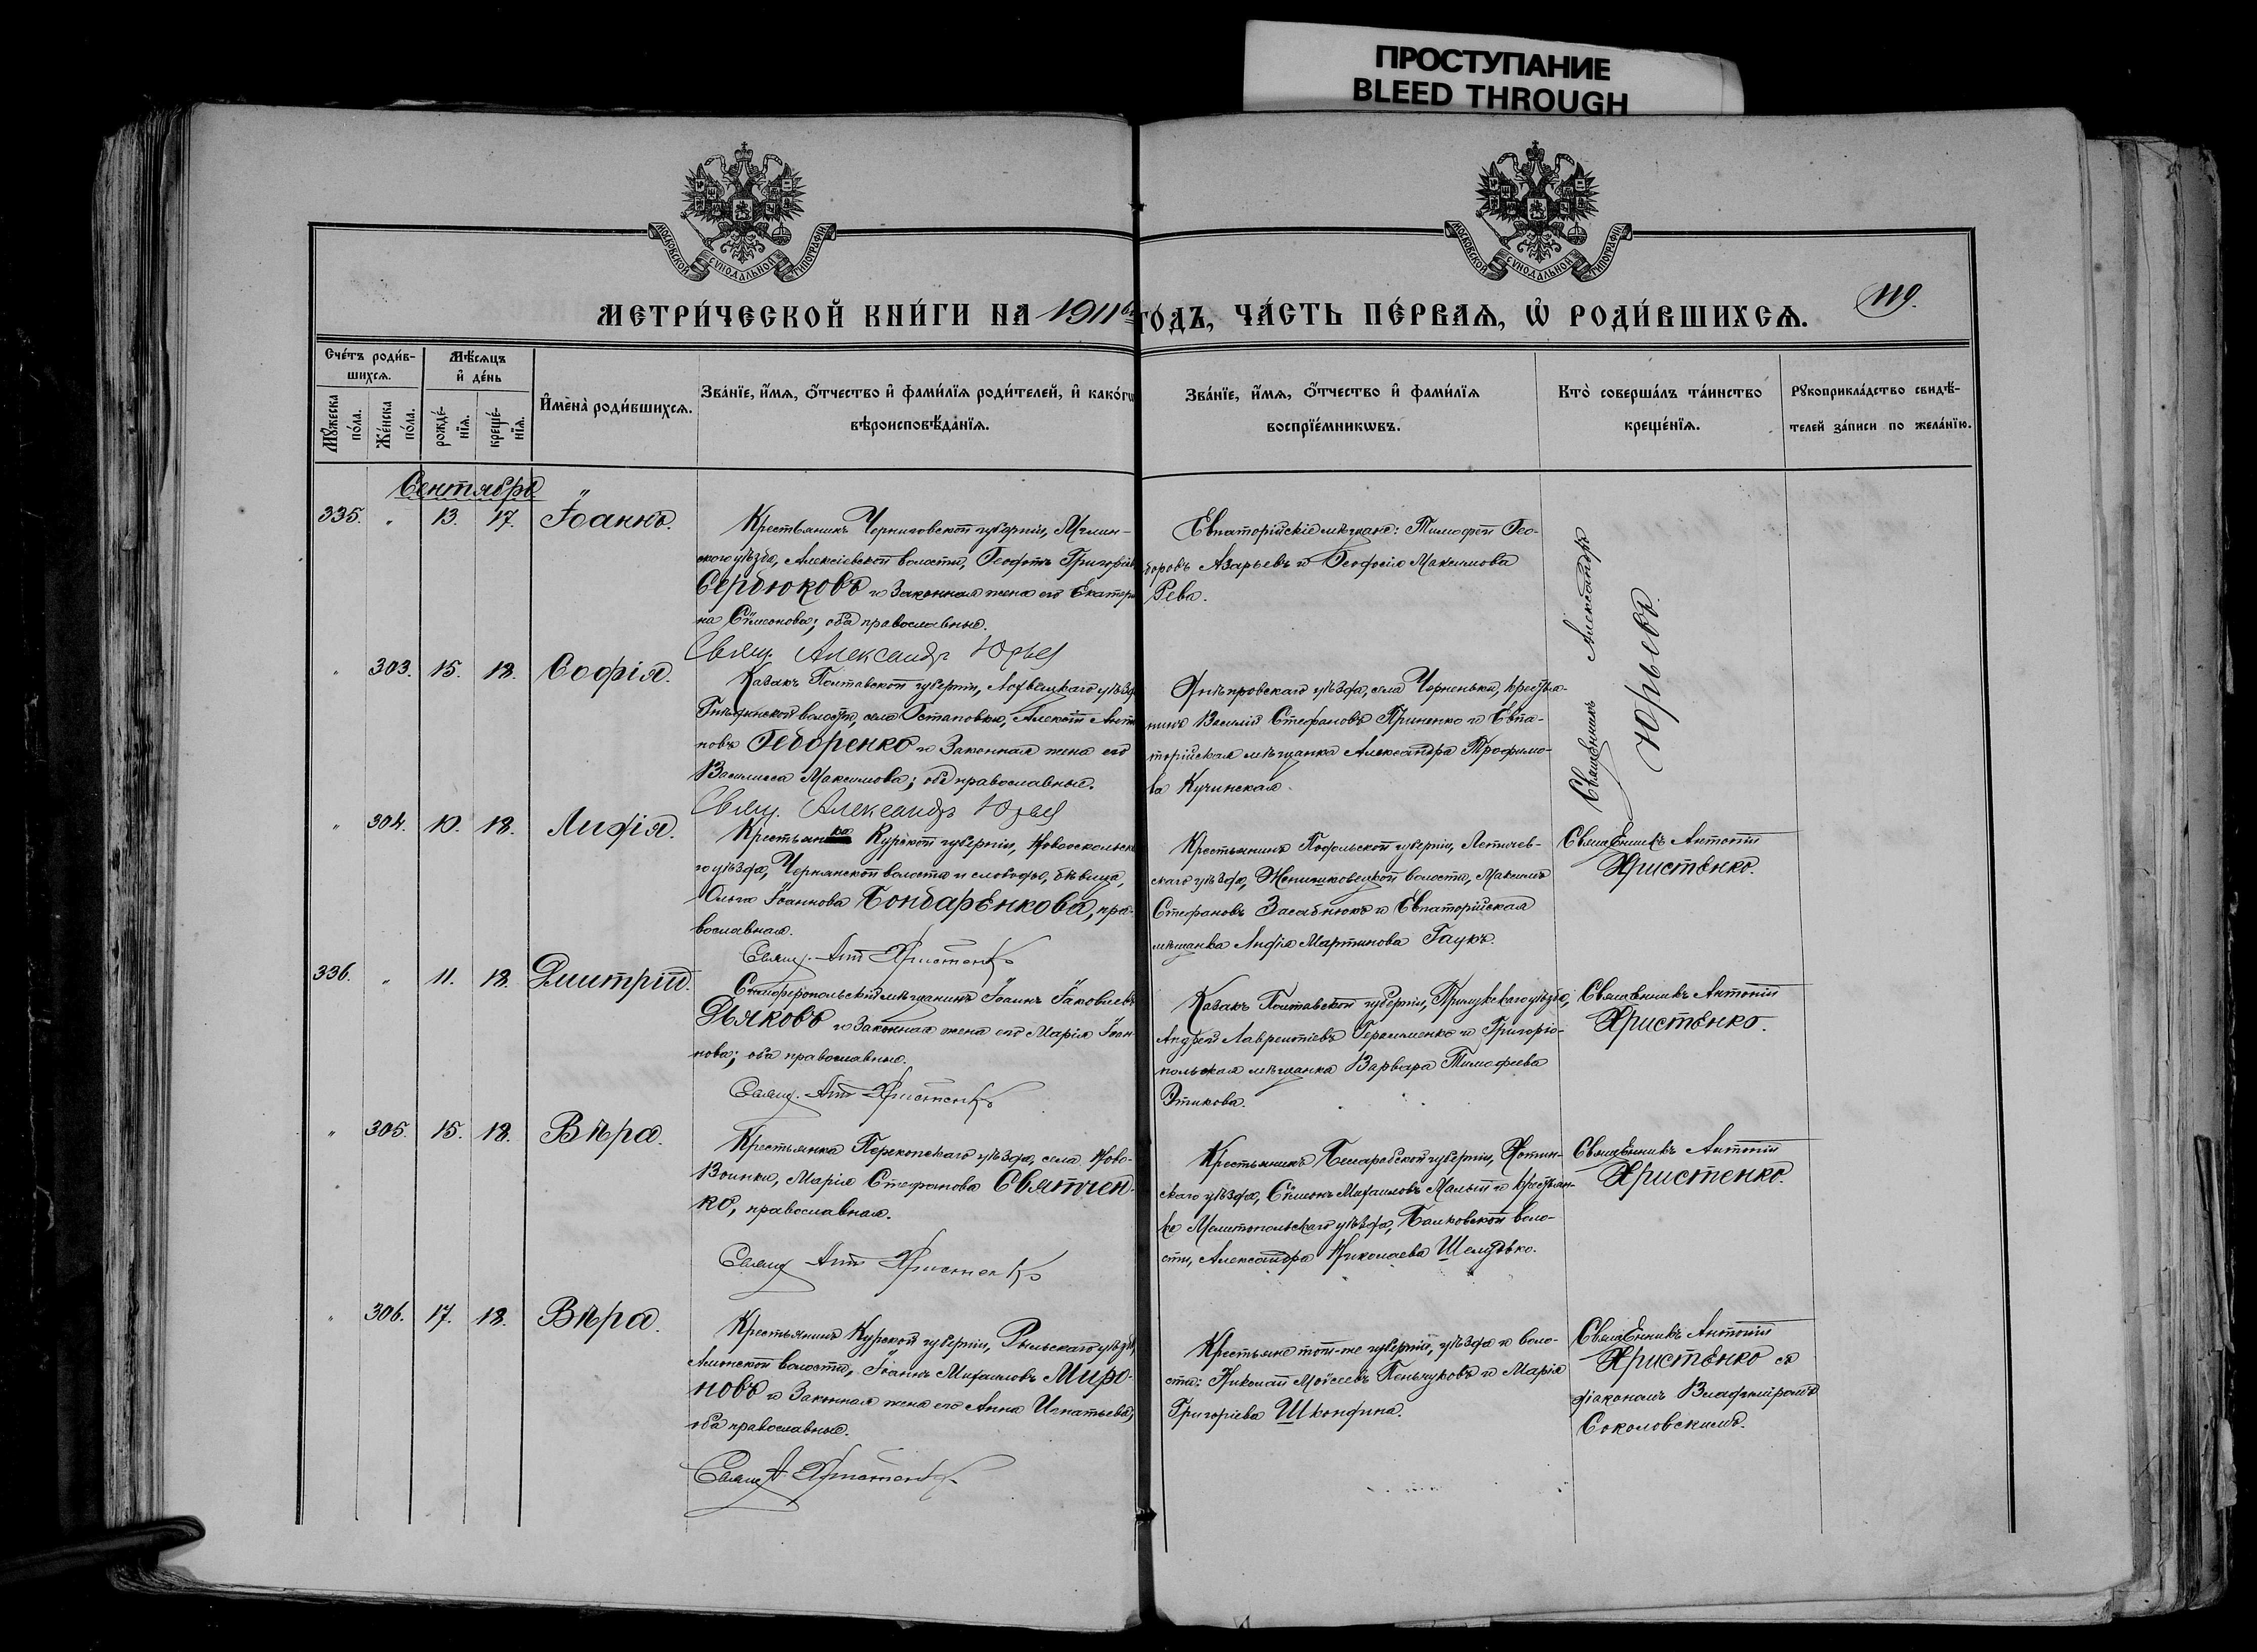 ПРОСТУПАНИЕ
BLEED THROUGH
МОСКОВСКОЙ СѴНОДАЛЬНОЙ ТИПОГРАФІИ
МОСКОВСКОЙ СѴНОДАЛЬНОЙ ТИПОГРАФІИ
МЕТРИ́ЧЕСКОЙ КНИ́ГИ НА 1911й ГО́ДЪ, ЧА́СТЬ ПЕ́РВАѦ, Ѡ҆ РОДИ́ВШИХСѦ.
119.
Сче́тъ роди́в-
шихсѧ.
Мꙋ́жеска
по́ла.
Же́нска
по́ла.
Мѣ́сѧцъ
и҆ де́нь
рожде́-
нїѧ.
креще́-
нїѧ.
И҆мена̀ роди́вшихсѧ.
Зва́нїе, и҆́мѧ, ѻ҆́тчество и҆ фами́лїѧ роди́телей, и҆ како́гѡ
вѣроисповѣ́данїѧ.
Зва́нїе, и҆́мѧ, ѻ҆́тчество и҆ фами́лїѧ
воспрїе́мникѡвъ.
Кто̀ соверша́лъ та́инство
креще́нїѧ.
Рꙋкоприкла́дство свидѣ́-
телей за́писи по жела́нїю.
Сентябрь
335. " 13. 17. Іоаннъ.
Крестьянинъ Черниговской губерніи, Мглин-
скаго уѣзда, Алексѣевской волости, Ѳеофанъ Григорьевъ
Сердюковъ и законная жена его Екатери-
на Сѵмеонова; оба православные.
Свящ. Александръ Юрьев
Евпаторійскіе мѣщане: Тимофей Ѳео-
доровъ Азарьевъ и Ѳеодосія Максимова
Рева.
Священникъ Александръ
Юрьевъ.
" 303. 15. 18. Софія.
Казакъ Полтавской губерніи, Лохвицкаго уѣзда,
волости, села Остаповки, Алексѣй Анто-
новъ Ѳедоренко и законная жена его
Василисса Максимова; оба православные.
Свящ. Александръ Юрьев
Днѣпровскаго уѣзда, села Чорненьки, крестья-
нинъ Василій Стефановъ Приненко и Евпа-
торійская мѣщанка Александра Трофимо-
ва Кучинская.
" 304. 10. 18. Лидія.
Крестьянка Курской губерніи, Новооскольска-
го уѣзда, Чернянской волости и слободы, дѣвица,
Ольга Іоаннова Бондаренкова, пра-
вославная.
Свящ. Ант Христенко
Крестьянинъ Подольской губерніи, Летичев-
скаго уѣзда, волости, Максимъ
Стефановъ и Евпаторійская
мѣщанка Лидія Мартинова Гаукъ.
Священникъ Антоній
Христенко.
336. " 11. 18. Димитрій.
Симферопольскій мѣщанинъ Іоаннъ Іаковлевъ
Дьяковъ и законная жена его Марія Іоан-
нова; оба православные.
Свящ. Ант Христенко
Казакъ Полтавской губерніи, Прилукскаго уѣзда,
Андрей Лаврентіевъ Герасименко и Григоріо-
польская мѣщанка Варвара Тимофеева
Этикова.
Священникъ Антоній
Христенко.
" 305. 15. 18. Вѣра.
Крестьянка Перекопскаго уѣзда, села Ново-
Воинки, Марія Стефанова Святчен-
ко, православная.
Свящ Ант Христенко
Крестьянинъ Бессарабской губерніи, Хотин-
скаго уѣзда, Сѵмеонъ Михаиловъ и крестьян-
ка Мелитопольскаго уѣзда, Балковской воло-
сти, Александра Николаева Шелудько.
Священникъ Антоній
Христенко.
" 306. 17. 18. Вѣра.
Крестьянинъ Курской губерніи, Рыльскаго уѣзда,
Амонской волости, Іоаннъ Михаиловъ Миро-
новъ и законная жена его Анна Игнатьева;
оба православные.
Свящ А Христенко
Крестьяне той-же губерніи, уѣзда и воло-
сти: Николай Моѵсеевъ Пеньчуковъ и Марія
Григоріева Шкондина.
Священникъ Антоній
Христенко съ
діакономъ Владиміромъ
Соколовскимъ.